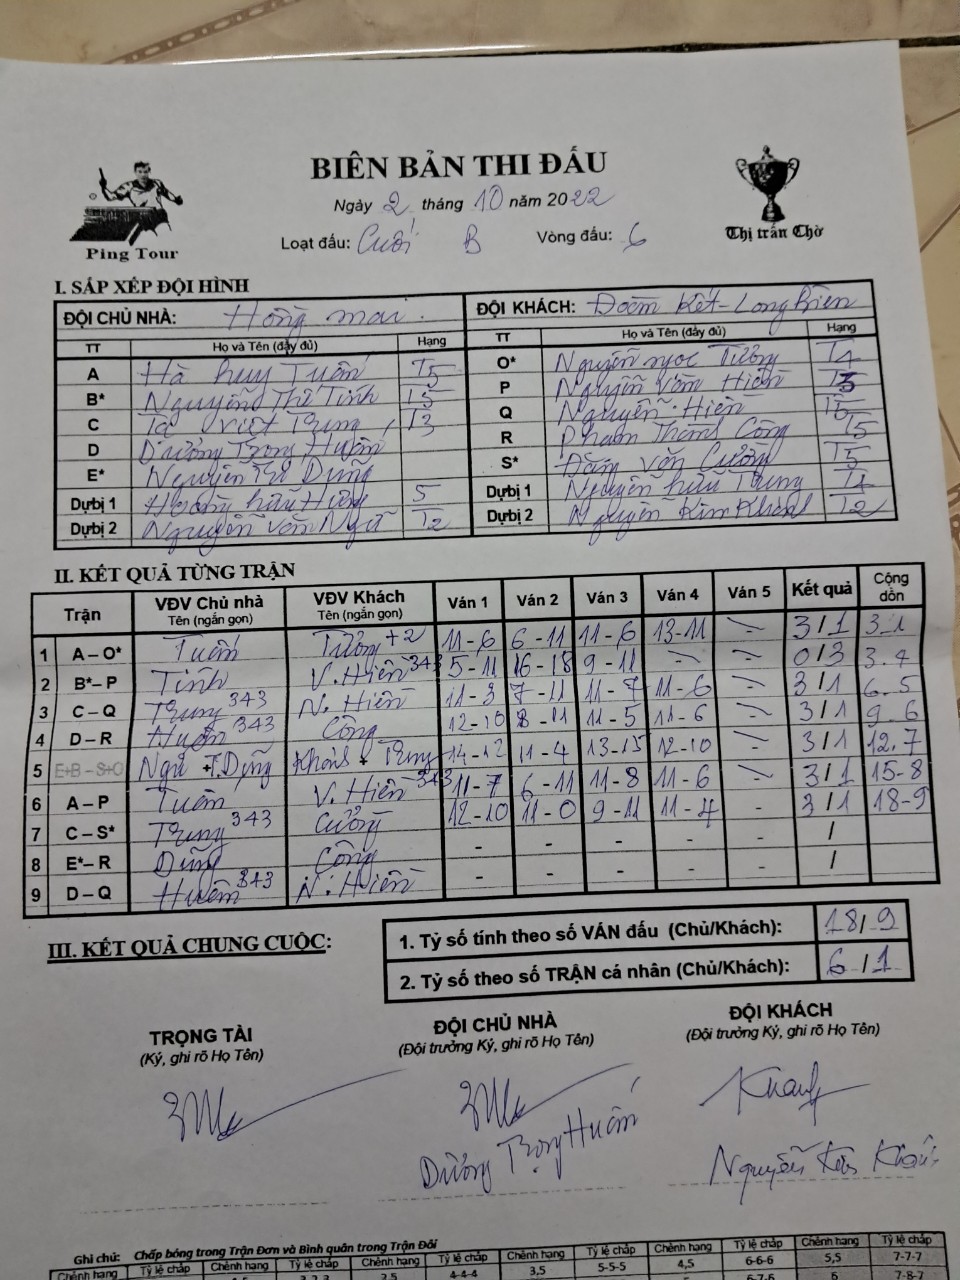 BIÊN BẢN THI ĐẤU
Ngày 2 tháng 10 năm 2022
Loạt đấu: Cuối B Vòng đấu: 6
Ping Tour
Thị trấn Chờ
I. SẮP XẾP ĐỘI HÌNH
ĐỘI CHỦ NHÀ: Hồng mai. ĐỘI KHÁCH: Đoàn Kết-Long Biên
TT Họ và Tên (đầy đủ) Hạng TT Họ và Tên (đầy đủ) Hạng
A Hà huy Tuấn T5 O* Nguyễn ngọc Tưởng T4
B* Nguyễn Thị Tình T5 P Nguyễn Văn Hiền
C Tạ Việt Trung T3 Q Nguyễn Hiền
D Dương Trọng Huấn R Phạm Thành Công T5
E* Nguyễn Dũng S* Đặng Văn Cường T5
Dự bị 1 Hoàng hữu Hùng 5 Dự bị 1 Nguyễn hữu Trung
Dự bị 2 Nguyễn văn Ngữ T2 Dự bị 2 Nguyễn Kim Khánh T2
II. KẾT QUẢ TỪNG TRẬN
Trận VĐV Chủ nhà Tên (ngắn gọn) VĐV Khách Tên (ngắn gọn) Ván 1 Ván 2 Ván 3 Ván 4 Ván 5 Kết quả Cộng dồn
1 A – O* Tuấn Tưởng +2 11-6 6-11 11-6 13-11 - 3/1 3-1
2 B* – P Tình V. Hiền 343 5-11 16-18 9-11 - - 0/3 3-4
3 C – Q Trung 343 N. Hiền 11-3 7-11 11-7 11-6 - 3/1 6-5
4 D – R Huấn 343 Công 12-10 8-11 11-5 11-6 - 3/1 9-6
5 E+B – S+O Ngữ + T.Dũng Khánh + Trung 14-12 11-4 13-15 12-10 - 3/1 12-7
6 A – P Tuấn V. Hiền 343 11-7 6-11 11-8 11-6 - 3/1 15-8
7 C – S* Trung 343 Cường 12-10 11-0 9-11 11-4 - 3/1 18-9
8 E* – R Dũng Công - - - - - /
9 D – Q Huấn 343 N. Hiền - - - - - /
III. KẾT QUẢ CHUNG CUỘC:
1. Tỷ số tính theo số VÁN đấu (Chủ/Khách): 18/9
2. Tỷ số theo số TRẬN cá nhân (Chủ/Khách): 6/1
TRỌNG TÀI ĐỘI CHỦ NHÀ ĐỘI KHÁCH
(Ký, ghi rõ Họ Tên) (Đội trưởng Ký, ghi rõ Họ Tên) (Đội trưởng Ký, ghi rõ Họ Tên)
Khanh
Dương Trọng Huấn Nguyễn Kim Khánh
Ghi chú: Chấp bóng trong Trận Đơn và Bình quân trong Trận Đôi
Chênh hạng Tỷ lệ chấp Chênh hạng Tỷ lệ chấp Chênh hạng Tỷ lệ chấp Chênh hạng Tỷ lệ chấp Chênh hạng Tỷ lệ chấp
2,5 4-4-4 3,5 5-5-5 4,5 6-6-6 5,5 7-7-7
6-7-6 6 7-8-7